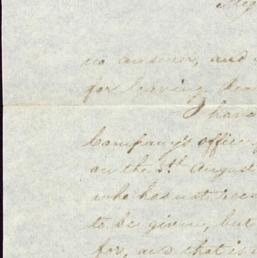 no answer, and
for leaving
I have
Company's office
on the 5th August
who has not rece
to be given, but
for, and that is